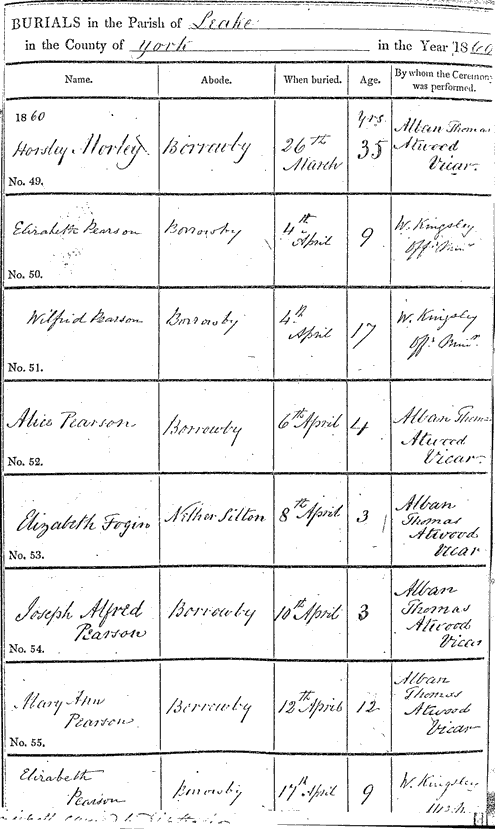 BURIALS in the Parish of Leake
in the County of York in the Year 1860
Name. Abode. When buried. Age. By whom the Ceremony was performed.
1860
Horsley Morley Borrowby 26th March yrs. 35 Alban Thomas Atwood Vicar.
No. 49.
Elizabeth Pearson Borrowby 4th April 9 W. Kingsley Offg. Minr.
No. 50.
Wilfrid Pearson Borrowby 4th April 17 W. Kingsley Offg. Minr.
No. 51.
Alice Pearson Borrowby 6th April 4 Alban Thomas Atwood Vicar.
No. 52.
Elizabeth Fogin Nether Silton 8th April 3 Alban Thomas Atwood Vicar
No. 53.
Joseph Alfred Pearson Borrowby 10th April 3 Alban Thomas Atwood Vicar
No. 54.
Mary Ann Pearson Borrowby 12th April 12 Alban Thomas Atwood Vicar
No. 55.
Elizabeth Pearson Borrowby 17th April 9 W. Kingsley